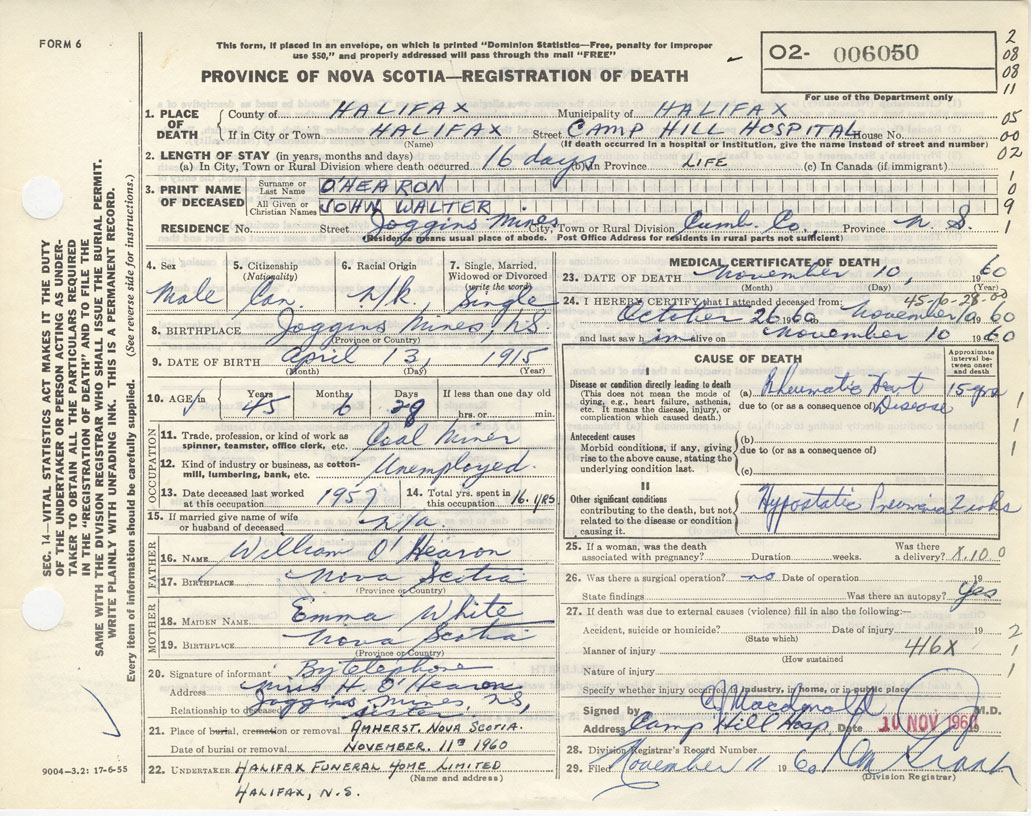 FORM 6
This form, if placed in an envelope, on which is printed "Dominion Statistics—Free, penalty for improper
use $50," and properly addressed will pass through the mail "FREE"
PROVINCE OF NOVA SCOTIA—REGISTRATION OF DEATH
02- 006050
For use of the Department only
2
08
08
11
05
00
02
1
0
9
1
SEC. 14—VITAL STATISTICS ACT MAKES IT THE DUTY
OF THE UNDERTAKER OR PERSON ACTING AS UNDER-
TAKER TO OBTAIN ALL THE PARTICULARS REQUIRED
IN THE "REGISTRATION OF DEATH" AND TO FILE THE
SAME WITH THE DIVISION REGISTRAR WHO SHALL ISSUE THE BURIAL PERMIT.
WRITE PLAINLY WITH UNFADING INK. THIS IS A PERMANENT RECORD.
Every item of information should be carefully supplied. (See reverse side for instructions.)
9004—3.2: 17-6-55
1. PLACE OF DEATH
County of HALIFAX Municipality of HALIFAX
If in City or Town HALIFAX Street CAMP HILL HOSPITAL House No.
(Name) (If death occurred in a hospital or institution, give the name instead of street and number)
2. LENGTH OF STAY (in years, months and days)
(a) In City, Town or Rural Division where death occurred 16 days (b) In Province LIFE (c) In Canada (if immigrant)
3. PRINT NAME OF DECEASED
Surname or Last Name O'HEARON
All Given or Christian Names JOHN WALTER
RESIDENCE No. Street Joggins Mines City, Town or Rural Division Cumb. Co. Province N. S.
(Residence means usual place of abode. Post Office Address for residents in rural parts not sufficient)
4. Sex Male
5. Citizenship (Nationality) Can.
6. Racial Origin N/K
7. Single, Married, Widowed or Divorced (write the word) Single
8. BIRTHPLACE Joggins Mines, N.S.
(Province or Country)
9. DATE OF BIRTH April 13, 1915
(Month) (Day) (Year)
10. AGE in Years 45 Months 6 Days 28 If less than one day old hrs. or min.
OCCUPATION
11. Trade, profession, or kind of work as spinner, teamster, office clerk, etc. Coal Miner
12. Kind of industry or business, as cotton-mill, lumbering, bank, etc. Unemployed.
13. Date deceased last worked at this occupation 1957
14. Total yrs. spent in this occupation 16. YRS
15. If married give name of wife or husband of deceased n/a.
FATHER
16. NAME William O'Hearon
17. BIRTHPLACE Nova Scotia
(Province or Country)
MOTHER
18. MAIDEN NAME Emma White
19. BIRTHPLACE Nova Scotia
(Province or Country)
20. Signature of informant By telephone
Miss H. O'Hearon
Address Joggins, Mines, NS,
Relationship to deceased sister
21. Place of burial, cremation or removal AMHERST. NOVA SCOTIA.
Date of burial or removal NOVEMBER. 11TH 1960
22. UNDERTAKER HALIFAX FUNERAL HOME LIMITED
(Name and address)
HALIFAX, N.S.
MEDICAL CERTIFICATE OF DEATH
23. DATE OF DEATH November 10, 1960
(Month) (Day) (Year)
45-6-28-00
24. I HEREBY CERTIFY that I attended deceased from:
October 26 1960 November 10 1960
and last saw him alive on November 10 1960
CAUSE OF DEATH
Approximate interval between onset and death
I
Disease or condition directly leading to death
(This does not mean the mode of dying, e.g., heart failure, asthenia, etc. It means the disease, injury, or complication which caused death.)
(a) Rheumatic Heart Disease 15 yrs
due to (or as a consequence of)
Antecedent causes
Morbid conditions, if any, giving rise to the above cause, stating the underlying condition last.
(b)
due to (or as a consequence of)
(c)
II
Other significant conditions contributing to the death, but not related to the disease or condition causing it.
Hypostatic Pneumonia 2 wks
1
1
1
25. If a woman, was the death associated with pregnancy? Duration weeks. Was there a delivery? X100
26. Was there a surgical operation? no Date of operation 19
State findings Was there an autopsy? Yes
27. If death was due to external causes (violence) fill in also the following:—
Accident, suicide or homicide? Date of injury 19
(State which)
Manner of injury 416X
(How sustained)
Nature of injury
2
1
1
Specify whether injury occurred in industry, in home, or in public place
Signed by Macdonald M.D.
Address Camp Hill Hosp. Date 10 NOV 1960 19
28. Division Registrar's Record Number
29. Filed November 11 1960
(Division Registrar)